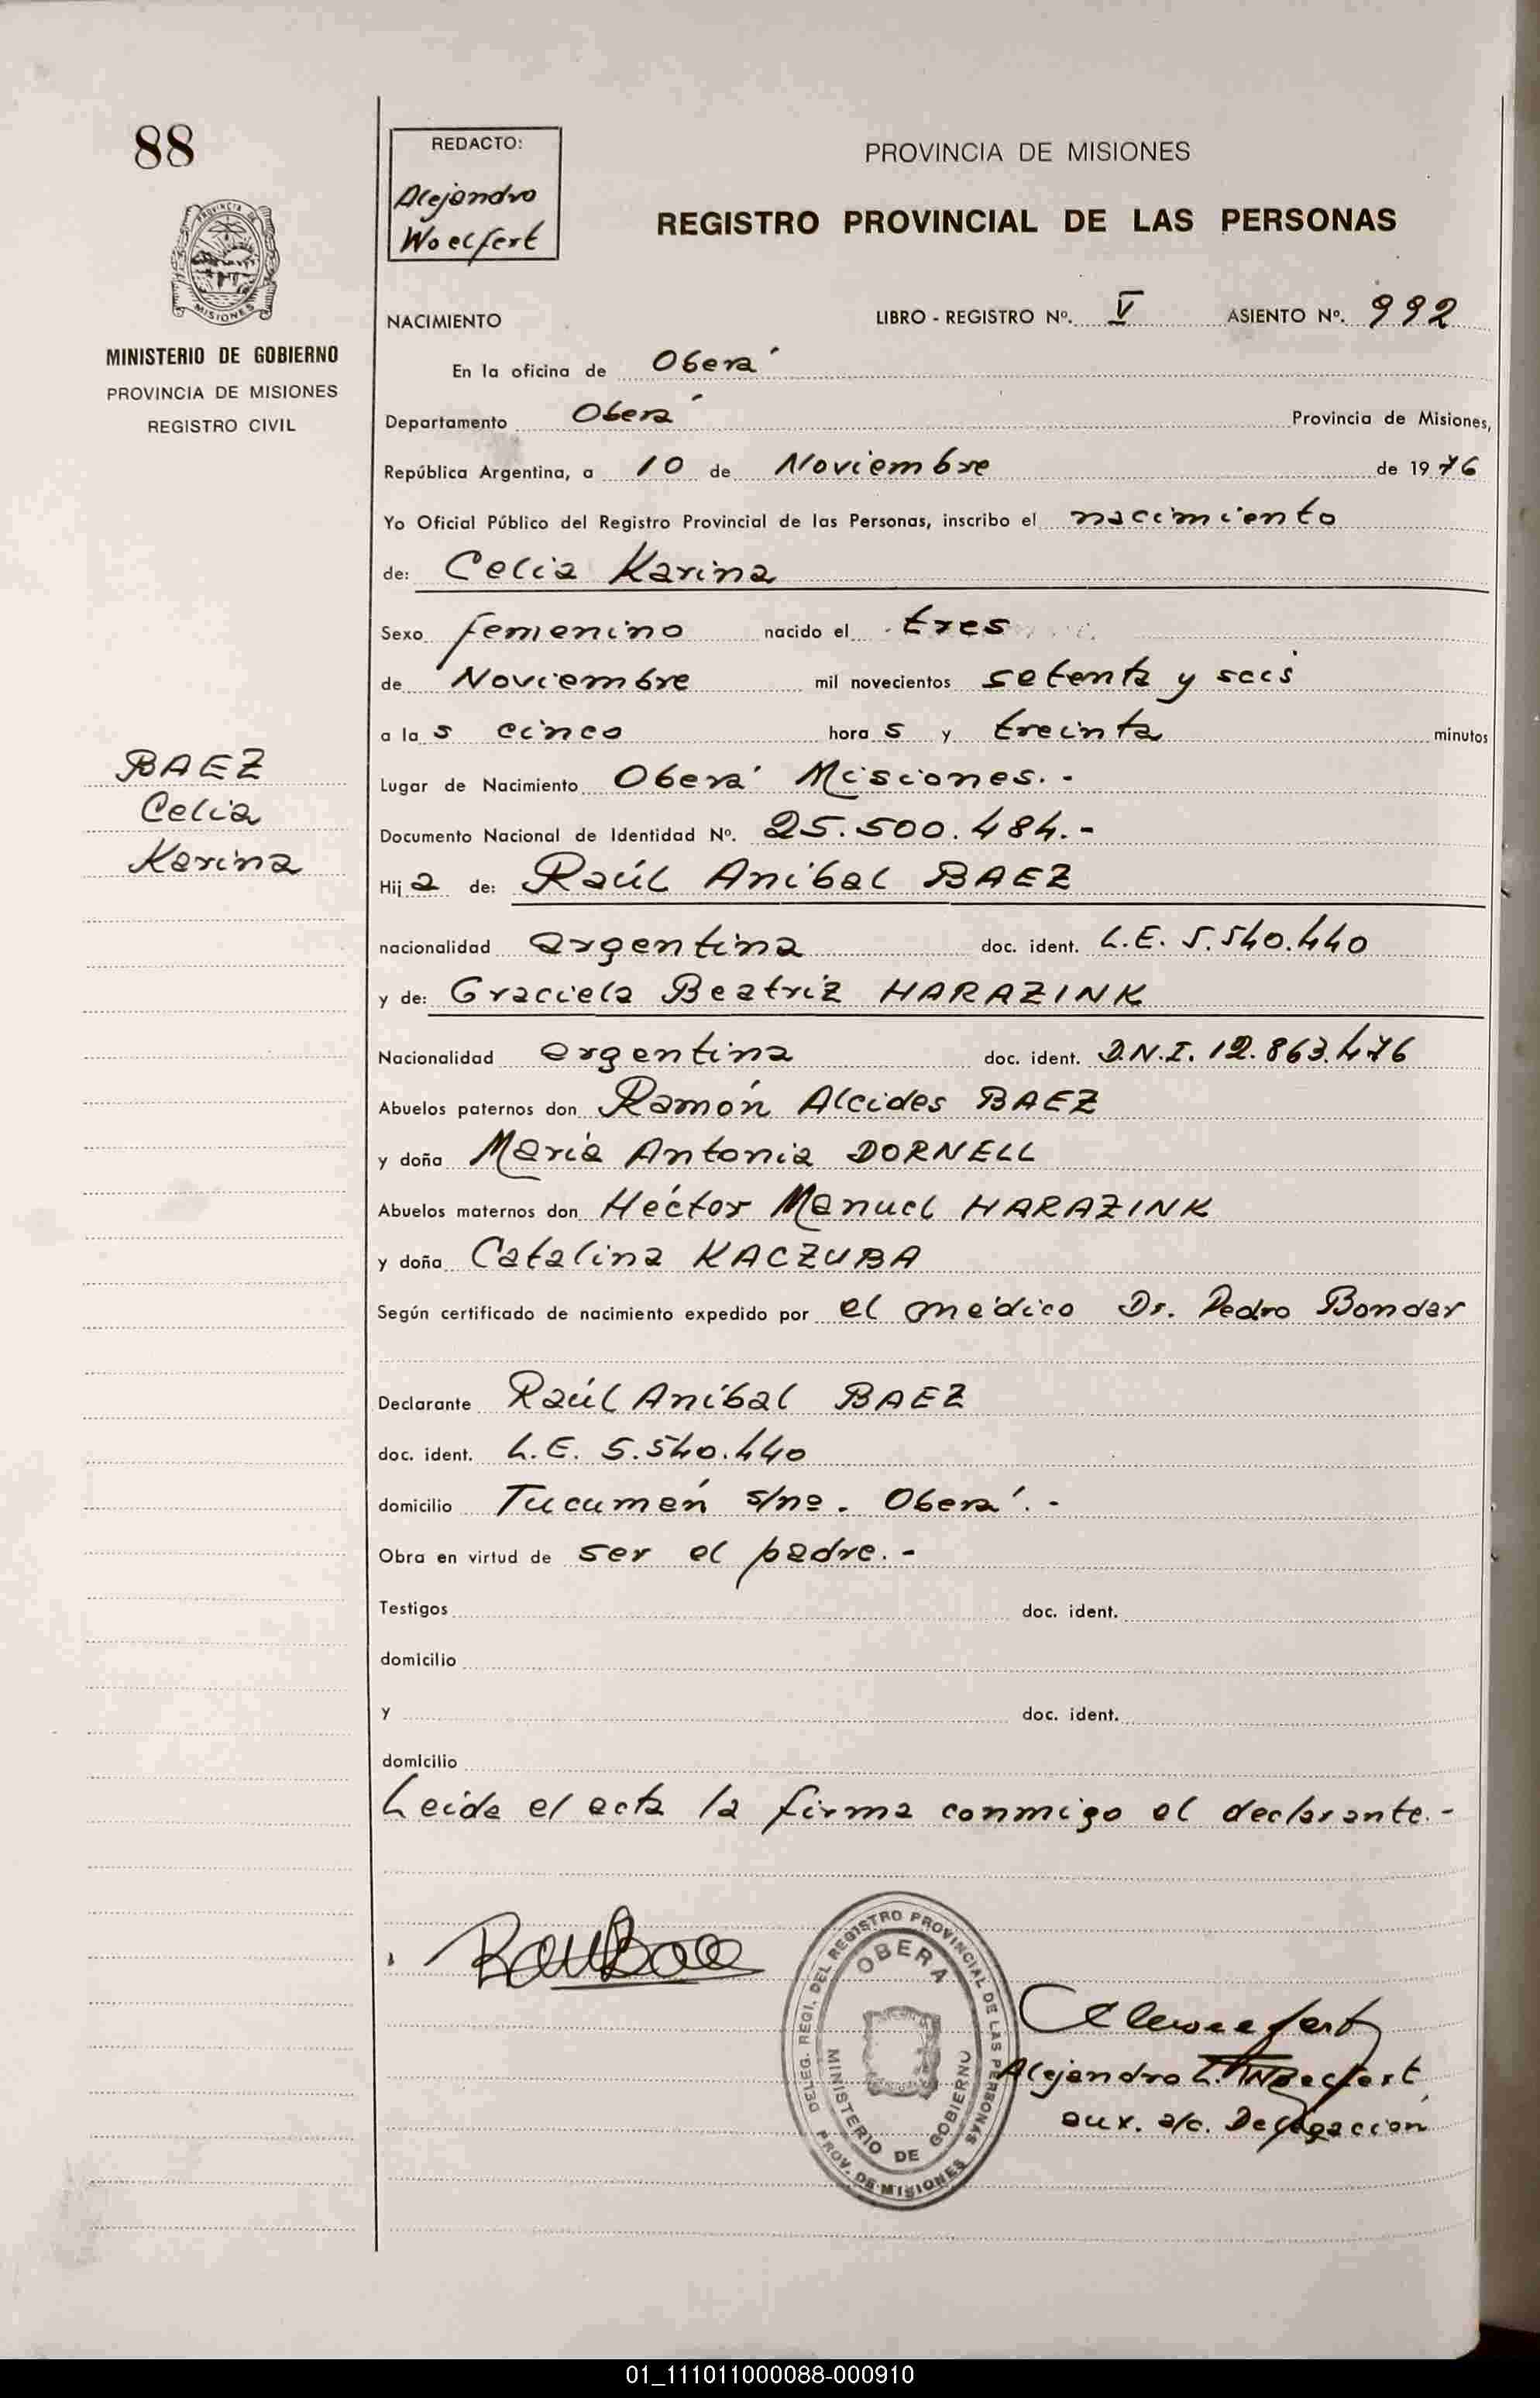 88
PROVINCIA DE
MISIONES
MINISTERIO DE GOBIERNO
PROVINCIA DE MISIONES
REGISTRO CIVIL
BAEZ
Celia
Karina
REDACTO:
Alejandro
Woelfert
PROVINCIA DE MISIONES
REGISTRO PROVINCIAL DE LAS PERSONAS
NACIMIENTO LIBRO - REGISTRO Nº. V ASIENTO Nº. 992
En la oficina de Oberá
Departamento Oberá Provincia de Misiones,
República Argentina, a 10 de Noviembre de 1976
Yo Oficial Público del Registro Provincial de las Personas, inscribo el nacimiento
de: Celia Karina
Sexo femenino nacido el tres
de Noviembre mil novecientos setenta y seis
a las cinco horas y treinta minutos
Lugar de Nacimiento Oberá Misiones.-
Documento Nacional de Identidad Nº. 25.500.484.-
Hija de: Raúl Aníbal BAEZ
nacionalidad argentina doc. ident. L.E. 5.540.440
y de: Graciela Beatriz HARAZINK
Nacionalidad argentina doc. ident. D.N.I. 12.863.476
Abuelos paternos don Ramón Alcides BAEZ
y doña María Antonia DORNELL
Abuelos maternos don Héctor Manuel HARAZINK
y doña Catalina KACZUBA
Según certificado de nacimiento expedido por el médico Dr. Pedro Bondar
Declarante Raúl Aníbal BAEZ
doc. ident. L.E. 5.540.440
domicilio Tucumán s/nº. Oberá.-
Obra en virtud de ser el padre.-
Testigos doc. ident.
domicilio
y doc. ident.
domicilio
Leida el acta la firma conmigo el declarante.-
DELEG. REGI. DEL REGISTRO PROVINCIAL DE LAS PERSONAS
OBERA
MINISTERIO DE GOBIERNO
PROV. DE MISIONES
Alejandro L. Woelfert
aux. a/c. Delegación
01_111011000088-000910